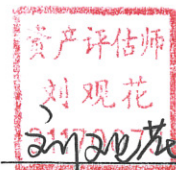 资产评估师
刘观花
刘观花